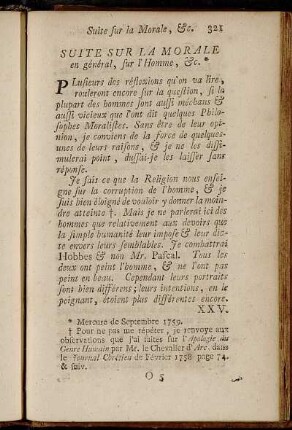 Suite sur la Morale, &c. 321
SUITE SUR LA MORALE
en général, sur l'Homme, &c. *
PLusieurs des réflexions qu'on va lire,
rouleront encore sur la question, si la
plupart des hommes sont aussi méchans &
aussi vicieux que l'ont dit quelques Philo-
sophes Moralistes. Sans être de leur opi-
nion, je conviens de la force de quelques-
unes de leurs raisons, & je ne les dissi-
mulerai point, dussai-je les laisser sans
réponse.
Je sais ce que la Religion nous ensei-
gne sur la corruption de l'homme, & je
suis bien éloigné de vouloir y donner la moin-
dre atteinte †. Mais je ne parlerai ici des
hommes que relativement aux devoirs que
la simple humanité leur impose & leur dic-
te envers leurs semblables. Je combattrai
Hobbes & non Mr. Pascal. Tous les
deux ont peint l'homme, & ne l'ont pas
peint en beau. Cependant leurs portraits
sont bien différens; leurs intentions, en le
peignant, étoient plus différentes encore.
XXV.
* Mercure de Septembre 1759.
† Pour ne pas me répéter, je renvoye aux
observations que j'ai faites sur l'Apologie du
Genre Humain par Mr. le Chevalier d'Arc. dans
le Journal Chrétien de Février 1758 page 74.
& suiv.
O 5